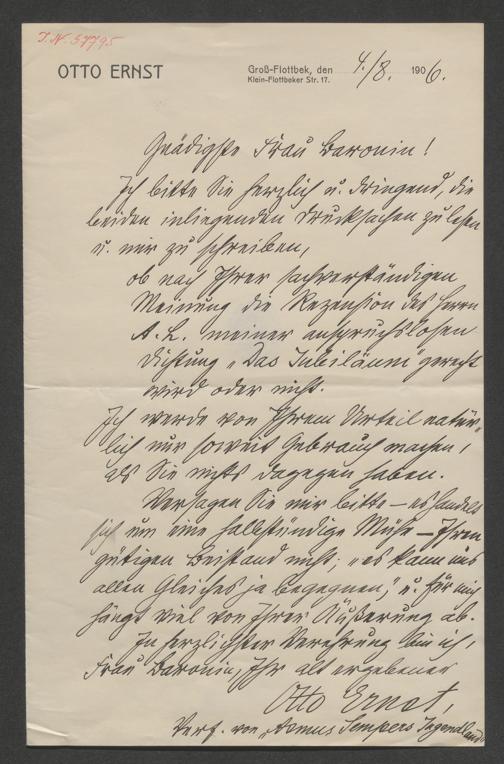 J.N. 57795
OTTO ERNST
Groß-Flottbek, den 4./8. 1906.
Klein-Flottbeker Str. 17.
Gnädigste Frau Baronin!
Ich bitte Sie herzlich u. dringend, die
beiden inliegenden Drucksachen zu lesen
u. mir zu schreiben,
ob nach Ihrer sachverständigen
Meinung die Rezension des Herrn
A. L. meiner anspruchslosen
Dichtung „Das Jubiläum“ gerecht
wird oder nicht.
Ich werde von Ihrem Urteil natür-
lich nur soweit Gebrauch machen,
als Sie nichts dagegen haben.
Versagen Sie mir bitte – es handelt
sich um eine halbstündige Mühe – Ihren
gütigen Beistand nicht; „es kann uns
allen Gleiches ja begegnen,“ u. für mich
hängt viel von Ihrer Äußerung ab.
In herzlichster Verehrung bin ich,
Frau Baronin, Ihr alt ergebener
Otto Ernst,
Verf. von „Asmus Sempers Jugendland“